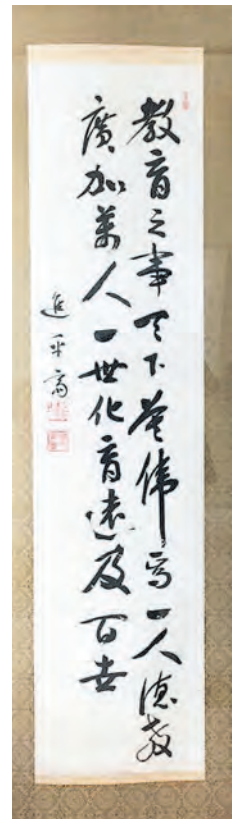 教育之事天下莫偉焉一人徳教
廣加萬人一世化育遠及百世
進乎斎